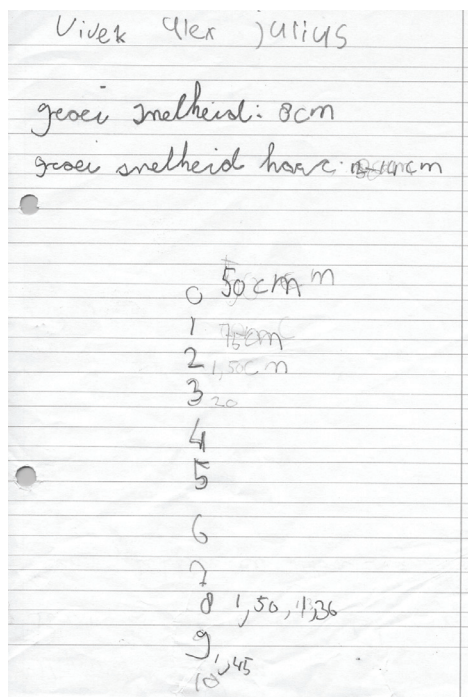 Vivek Alex Julius
groei snelheid: 8cm
groei snelheid haar: cm
0 50 cm m
1 75cm
2 1,50cm
3 20
4
5
6
7
8 1,50, 1,36
9 1,45
10